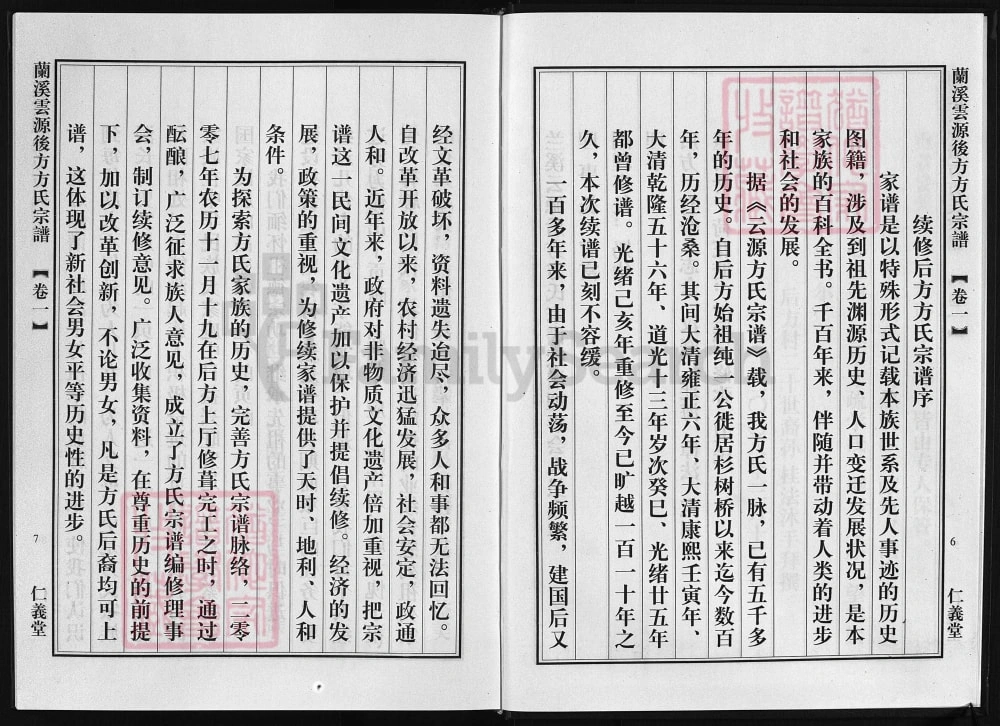 蘭溪雲源後方方氏宗譜 【卷一】 6 仁義堂
续修后方方氏宗谱序
家谱是以特殊形式记载本族世系及先人事迹的历史
图籍，涉及到祖先渊源历史、人口变迁发展状况，是本
家族的百科全书。千百年来，伴随并带动着人类的进步
和社会的发展。
据《云源方氏宗谱》载，我方氏一脉，已有五千多
年的历史。自后方始祖纯一公徙居杉树桥以来迄今数百
年，历经沧桑。其间大清雍正六年、大清康熙壬寅年、
大清乾隆五十六年、道光十三年岁次癸巳、光绪廿五年
都曾修谱。光绪己亥年重修至今已旷越一百一十年之
久，本次续谱已刻不容缓。
一百多年来，由于社会动荡，战争频繁，建国后又
经文革破坏，资料遗失迨尽，众多人和事都无法回忆。
自改革开放以来，农村经济迅猛发展，社会安定，政通
人和。近年来，政府对非物质文化遗产倍加重视，把宗
谱这一民间文化遗产加以保护并提倡续修。经济的发
展，政策的重视，为修续家谱提供了天时、地利、人和
条件。
为探索方氏家族的历史，完善方氏宗谱脉络，二零
零七年农历十一月十九在后方上厅修葺完工之时，通过
酝酿，广泛征求族人意见，成立了方氏宗谱编修理事
会，制订续修意见。广泛收集资料，在尊重历史的前提
下，加以改革创新，不论男女，凡是方氏后裔均可上
谱，这体现了新社会男女平等等历史性的进步。
蘭溪雲源後方方氏宗譜 【卷一】 7 仁義堂
FamilySearch